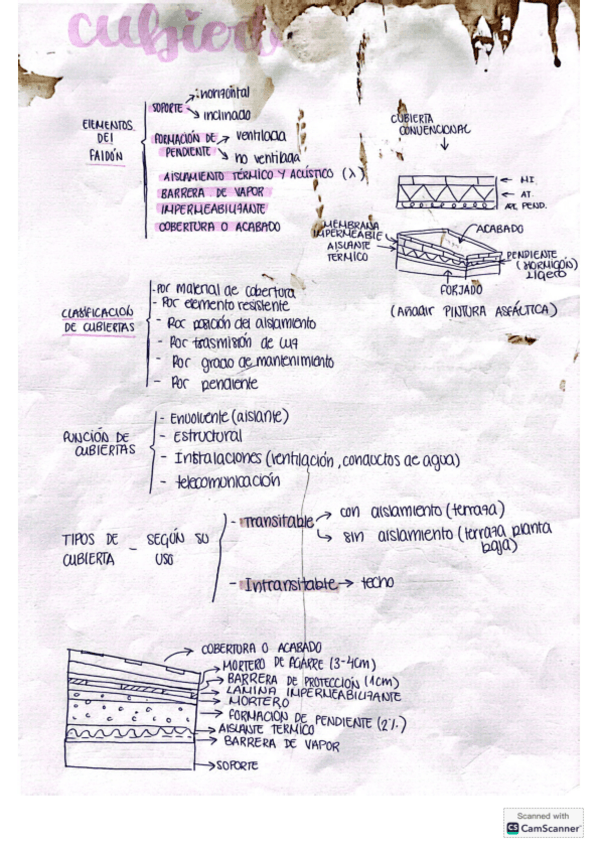 cubiert
ELEMENTOS DEL FALDÓN
SOPORTE
horizontal
inclinado
FORMACIÓN DE PENDIENTE
ventilada
no ventilada
AISLAMIENTO TÉRMICO Y ACÚSTICO (λ)
BARRERA DE VAPOR
IMPERMEABILIZANTE
COBERTURA O ACABADO
CUBIERTA CONVENCIONAL
AT.
PEND.
MEMBRANA IMPERMEABLE
AISLANTE TÉRMICO
ACABADO
PENDIENTE (HORMIGÓN) LIGERO
FORJADO
(AÑADIR PINTURA ASFÁCTICA)
CLASIFICACIÓN DE CUBIERTAS
- Por material de cobertura
- Por elemento resistente
- Por posición del aislamiento
- Por trasmisión de luz
- Por grado de mantenimiento
- Por pendiente
FUNCIÓN DE CUBIERTAS
- Envolvente (aislante)
- Estructural
- Instalaciones (ventilación, conductos de agua)
- telecomunicación
TIPOS DE CUBIERTA - SEGÚN SU USO
- Transitable
con aislamiento (terraza)
sin aislamiento (terraza planta baja)
- Intransitable → techo
COBERTURA O ACABADO
MORTERO DE AGARRE (3-4cm)
BARRERA DE PROTECCIÓN (1cm)
LAMINA IMPERMEABILIZANTE
MORTERO
FORMACIÓN DE PENDIENTE (2%)
AISLANTE TÉRMICO
BARRERA DE VAPOR
SOPORTE
Scanned with
CS CamScanner